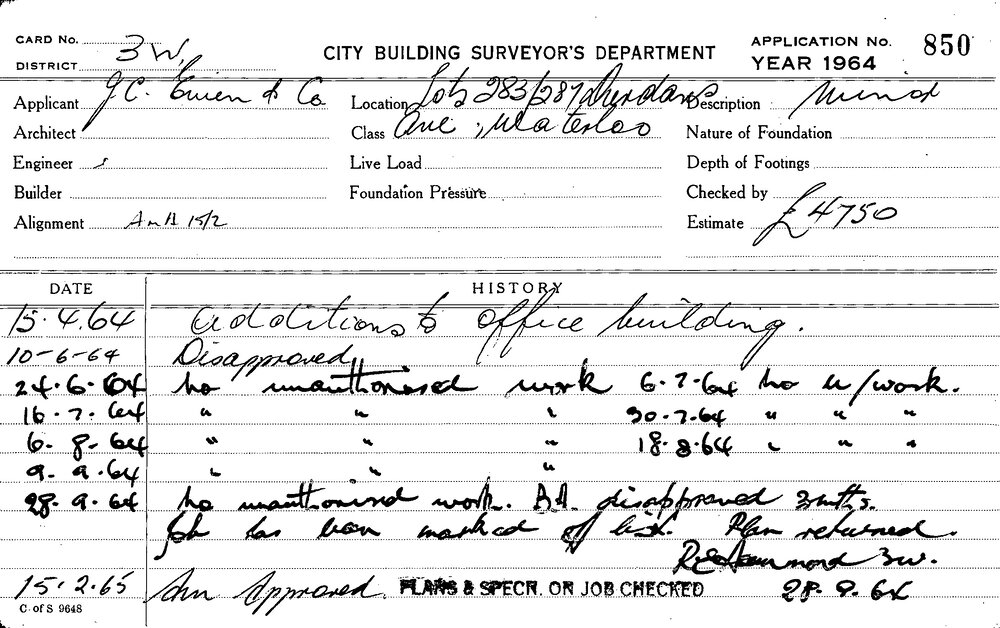 CARD No. 3W.
DISTRICT
CITY BUILDING SURVEYOR'S DEPARTMENT
APPLICATION No. 850
YEAR 1964
Applicant J.C. Ewen & Co
Location Lots 283/287
Description Minor
Architect
Class Ave, Waterloo
Nature of Foundation
Engineer
Live Load
Depth of Footings
Builder
Foundation Pressure
Checked by
Alignment 15/2
Estimate £4750
DATE HISTORY
15.4.64 Additions to office building.
10-6-64 Disapproved
24.6.64 No unauthorised work 6.7.64 No u/work.
16.7.64 " " " 30.7.64 " " "
6.8.64 " " " 18.8.64 " " "
9.9.64 " " "
28.9.64 No unauthorised work. B.A. disapproved 3 mths.
Job has been marked off list. Plan returned.
R.E. Hammond 3w.
28.9.64
15.2.65 Approved. PLANS & SPECN. ON JOB CHECKED
C. of S 9648